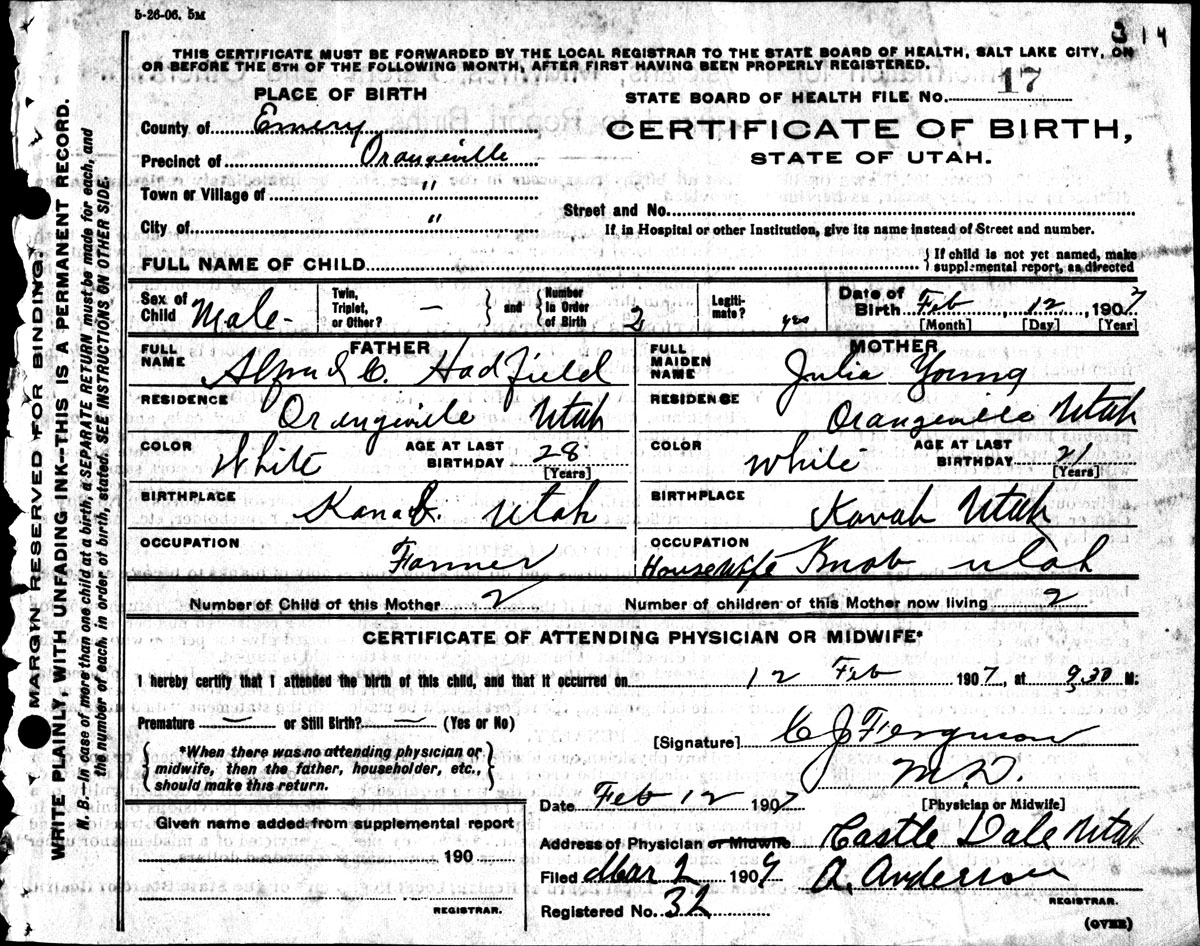 5-26-06. 5M
3 14
THIS CERTIFICATE MUST BE FORWARDED BY THE LOCAL REGISTRAR TO THE STATE BOARD OF HEALTH, SALT LAKE CITY, ON
OR BEFORE THE 5TH OF THE FOLLOWING MONTH, AFTER FIRST HAVING BEEN PROPERLY REGISTERED.
PLACE OF BIRTH
County of Emery
Precinct of Orangeville
Town or Village of "
City of "
STATE BOARD OF HEALTH FILE No. 17
CERTIFICATE OF BIRTH,
STATE OF UTAH.
Street and No.
If in Hospital or other Institution, give its name instead of Street and number.
FULL NAME OF CHILD
{If child is not yet named, make
supplemental report, as directed
Sex of Child Male - Twin, Triplet, or Other? — } and { Number in Order of Birth 2 Legitimate? yes Date of Birth Feb, 12, 1907
[Month] [Day] [Year]
FATHER
FULL NAME Alfred C. Hadfield
RESIDENCE Orangeville Utah
COLOR White AGE AT LAST BIRTHDAY 28
[Years]
BIRTHPLACE Utah
OCCUPATION Farmer
MOTHER
FULL MAIDEN NAME Julia Young
RESIDENCE Orangeville Utah
COLOR White AGE AT LAST BIRTHDAY 21
[Years]
BIRTHPLACE Utah
OCCUPATION Housewife Knob Utah
Number of Child of this Mother 2 Number of children of this Mother now living 2
CERTIFICATE OF ATTENDING PHYSICIAN OR MIDWIFE*
I hereby certify that I attended the birth of this child, and that it occurred on 12 Feb 1907, at 9.30 M:
Premature — or Still Birth? — (Yes or No)
{*When there was no attending physician or
midwife, then the father, householder, etc.,
should make this return.}
[Signature] C J Ferguson
M.D.
[Physician or Midwife]
Date Feb 12 1907
Given name added from supplemental report
190
REGISTRAR.
Address of Physician or Midwife Castle Dale Utah
Filed Mar 2 1907 A. Anderson
REGISTRAR.
Registered No. 32
(OVER)
MARGIN RESERVED FOR BINDING.
WRITE PLAINLY, WITH UNFADING INK--THIS IS A PERMANENT RECORD.
N. B.--In case of more than one child at a birth, a SEPARATE RETURN must be made for each, and
the number of each, in order of birth, stated. SEE INSTRUCTIONS ON OTHER SIDE.